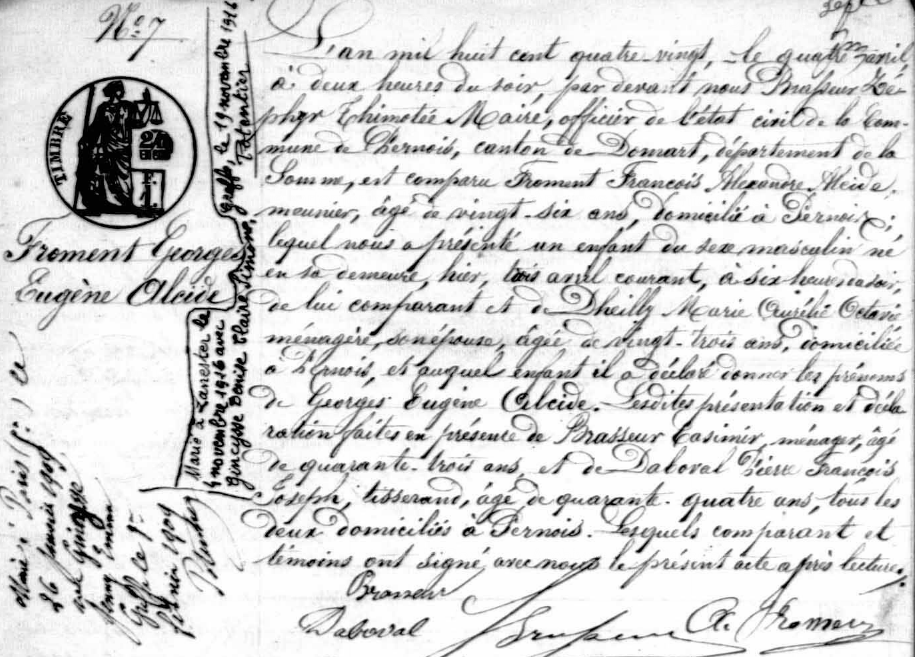 N.º 7
TIMBRE
Froment Georges
Eugène Alcide
L'an mil huit cent quatre vingt, le quatre avril
à deux heures du soir, par devant nous Brasseur Zé-
phyr Thimotée Maire, officier de l'état civil de la Com-
mune de Pernois, canton de Domart, département de la
Somme, est comparu Froment François Alexandre Alcide,
meunier, âgé de vingt-six ans, domicilié à Pernois;
lequel nous a présenté un enfant du sexe masculin né
en sa demeure, hier, trois avril courant, à six heures du soir,
de lui comparant et de Dheilly Marie Aurélie Octavie
ménagère, son épouse, âgée de vingt-trois ans, domiciliée
à Pernois, et auquel enfant il a déclaré donner les prénoms
de Georges Eugène Alcide. Lesdites présentation et décla
ration faites en présence de Brasseur Casimir, ménager, âgé
de quarante-trois ans, et de Daboval Pierre François
Joseph, tisserand, âgé de quarante-quatre ans, tous les
deux domiciliés à Pernois. Lesquels comparant et
témoins ont signé avec nous le présent acte après lecture.
Brasseur
Daboval
A. Froment
Marié à Lancster le
4 novembre 1916 avec
Gineysse Denise Claire Simone,
Greffe, le 19 novembre 1916
Marié à Paris 15e le
26 janvier 1909
avec Gineysse
Greffe le
1909